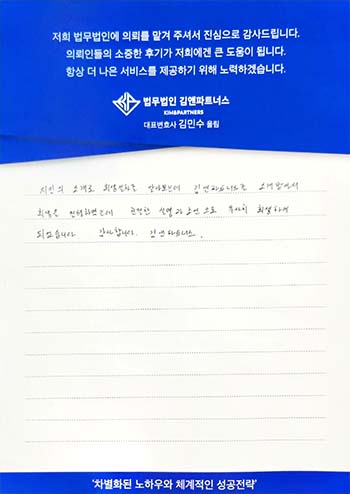 저희 법무법인에 의뢰를 맡겨 주셔서 진심으로 감사드립니다.
의뢰인들의 소중한 후기가 저희에겐 큰 도움이 됩니다.
항상 더 나은 서비스를 제공하기 위해 노력하겠습니다.
법무법인 김앤파트너스
KIM&PARTNERS
대표변호사 김민수 올림
지인의 소개로 회생전화를 알아보는데 김앤파트너스를 소개받아서
회생을 진행하였는데 친절한 설명과 조언으로 무사히 회생하게
되었습니다 감사합니다. 김앤파트너스.
'차별화된 노하우와 체계적인 성공전략'